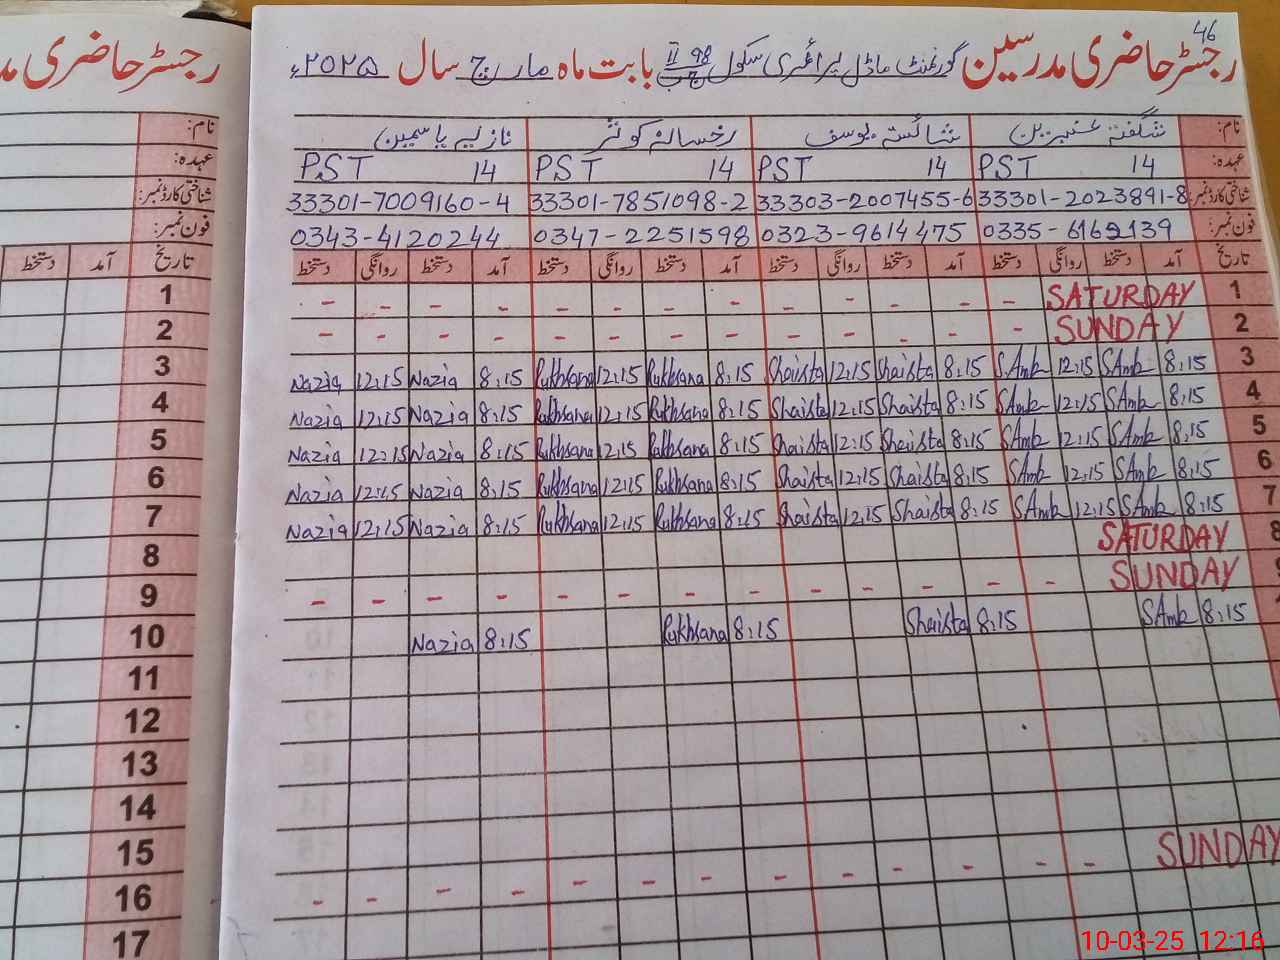 46
رجسٹر حاضری مدرسین گورنمنٹ ماڈل پرائمری سکول 98 ج ب II بابت ماہ مارچ سال ۲۰۲۵ء
رجسٹر حاضری مد
نام: شگفتہ عنبرین شائستہ یوسف رخسانہ کوثر نازلیہ یاسمین
عہدہ: PST 14 PST 14 PST 14 PST 14
شناختی کارڈ نمبر: 33301-2023891-8 33303-2007455-6 33301-7851098-2 33301-7009160-4
فون نمبر: 0335-6162139 0323-9614475 0347-2251598 0343-4120244
تاریخ آمد دستخط روانگی دستخط آمد دستخط روانگی دستخط آمد دستخط روانگی دستخط آمد دستخط روانگی دستخط
1 SATURDAY - - - - - - - - - -
2 SUNDAY - - - - - - - - - -
3 8:15 SAmb 12:15 SAmb 8:15 Shaista 12:15 Shaista 8:15 Rukhsana 12:15 Rukhsana 8:15 Nazia 12:15 Nazia
4 8:15 SAmb 12:15 SAmb 8:15 Shaista 12:15 Shaista 8:15 Rukhsana 12:15 Rukhsana 8:15 Nazia 12:15 Nazia
5 8:15 SAmb 12:15 SAmb 8:15 Shaista 12:15 Shaista 8:15 Rukhsana 12:15 Rukhsana 8:15 Nazia 12:15 Nazia
6 8:15 SAmb 12:15 SAmb 8:15 Shaista 12:15 Shaista 8:15 Rukhsana 12:15 Rukhsana 8:15 Nazia 12:15 Nazia
7 8:15 SAmb 12:15 SAmb 8:15 Shaista 12:15 Shaista 8:15 Rukhsana 12:15 Rukhsana 8:15 Nazia 12:15 Nazia
8 SATURDAY
9 SUNDAY - - - - - - - - - - - - -
8:15 SAmb 8:15 Shaista 8:15 Rukhsana 8:15 Nazia
SUNDAY - - - - - - - - - - - -
نام:
عہدہ:
شناختی کارڈ نمبر:
فون نمبر:
تاریخ آمد دستخط
1
2
3
4
5
6
7
8
9
10
11
12
13
14
15
16
17
10-03-25 12:16